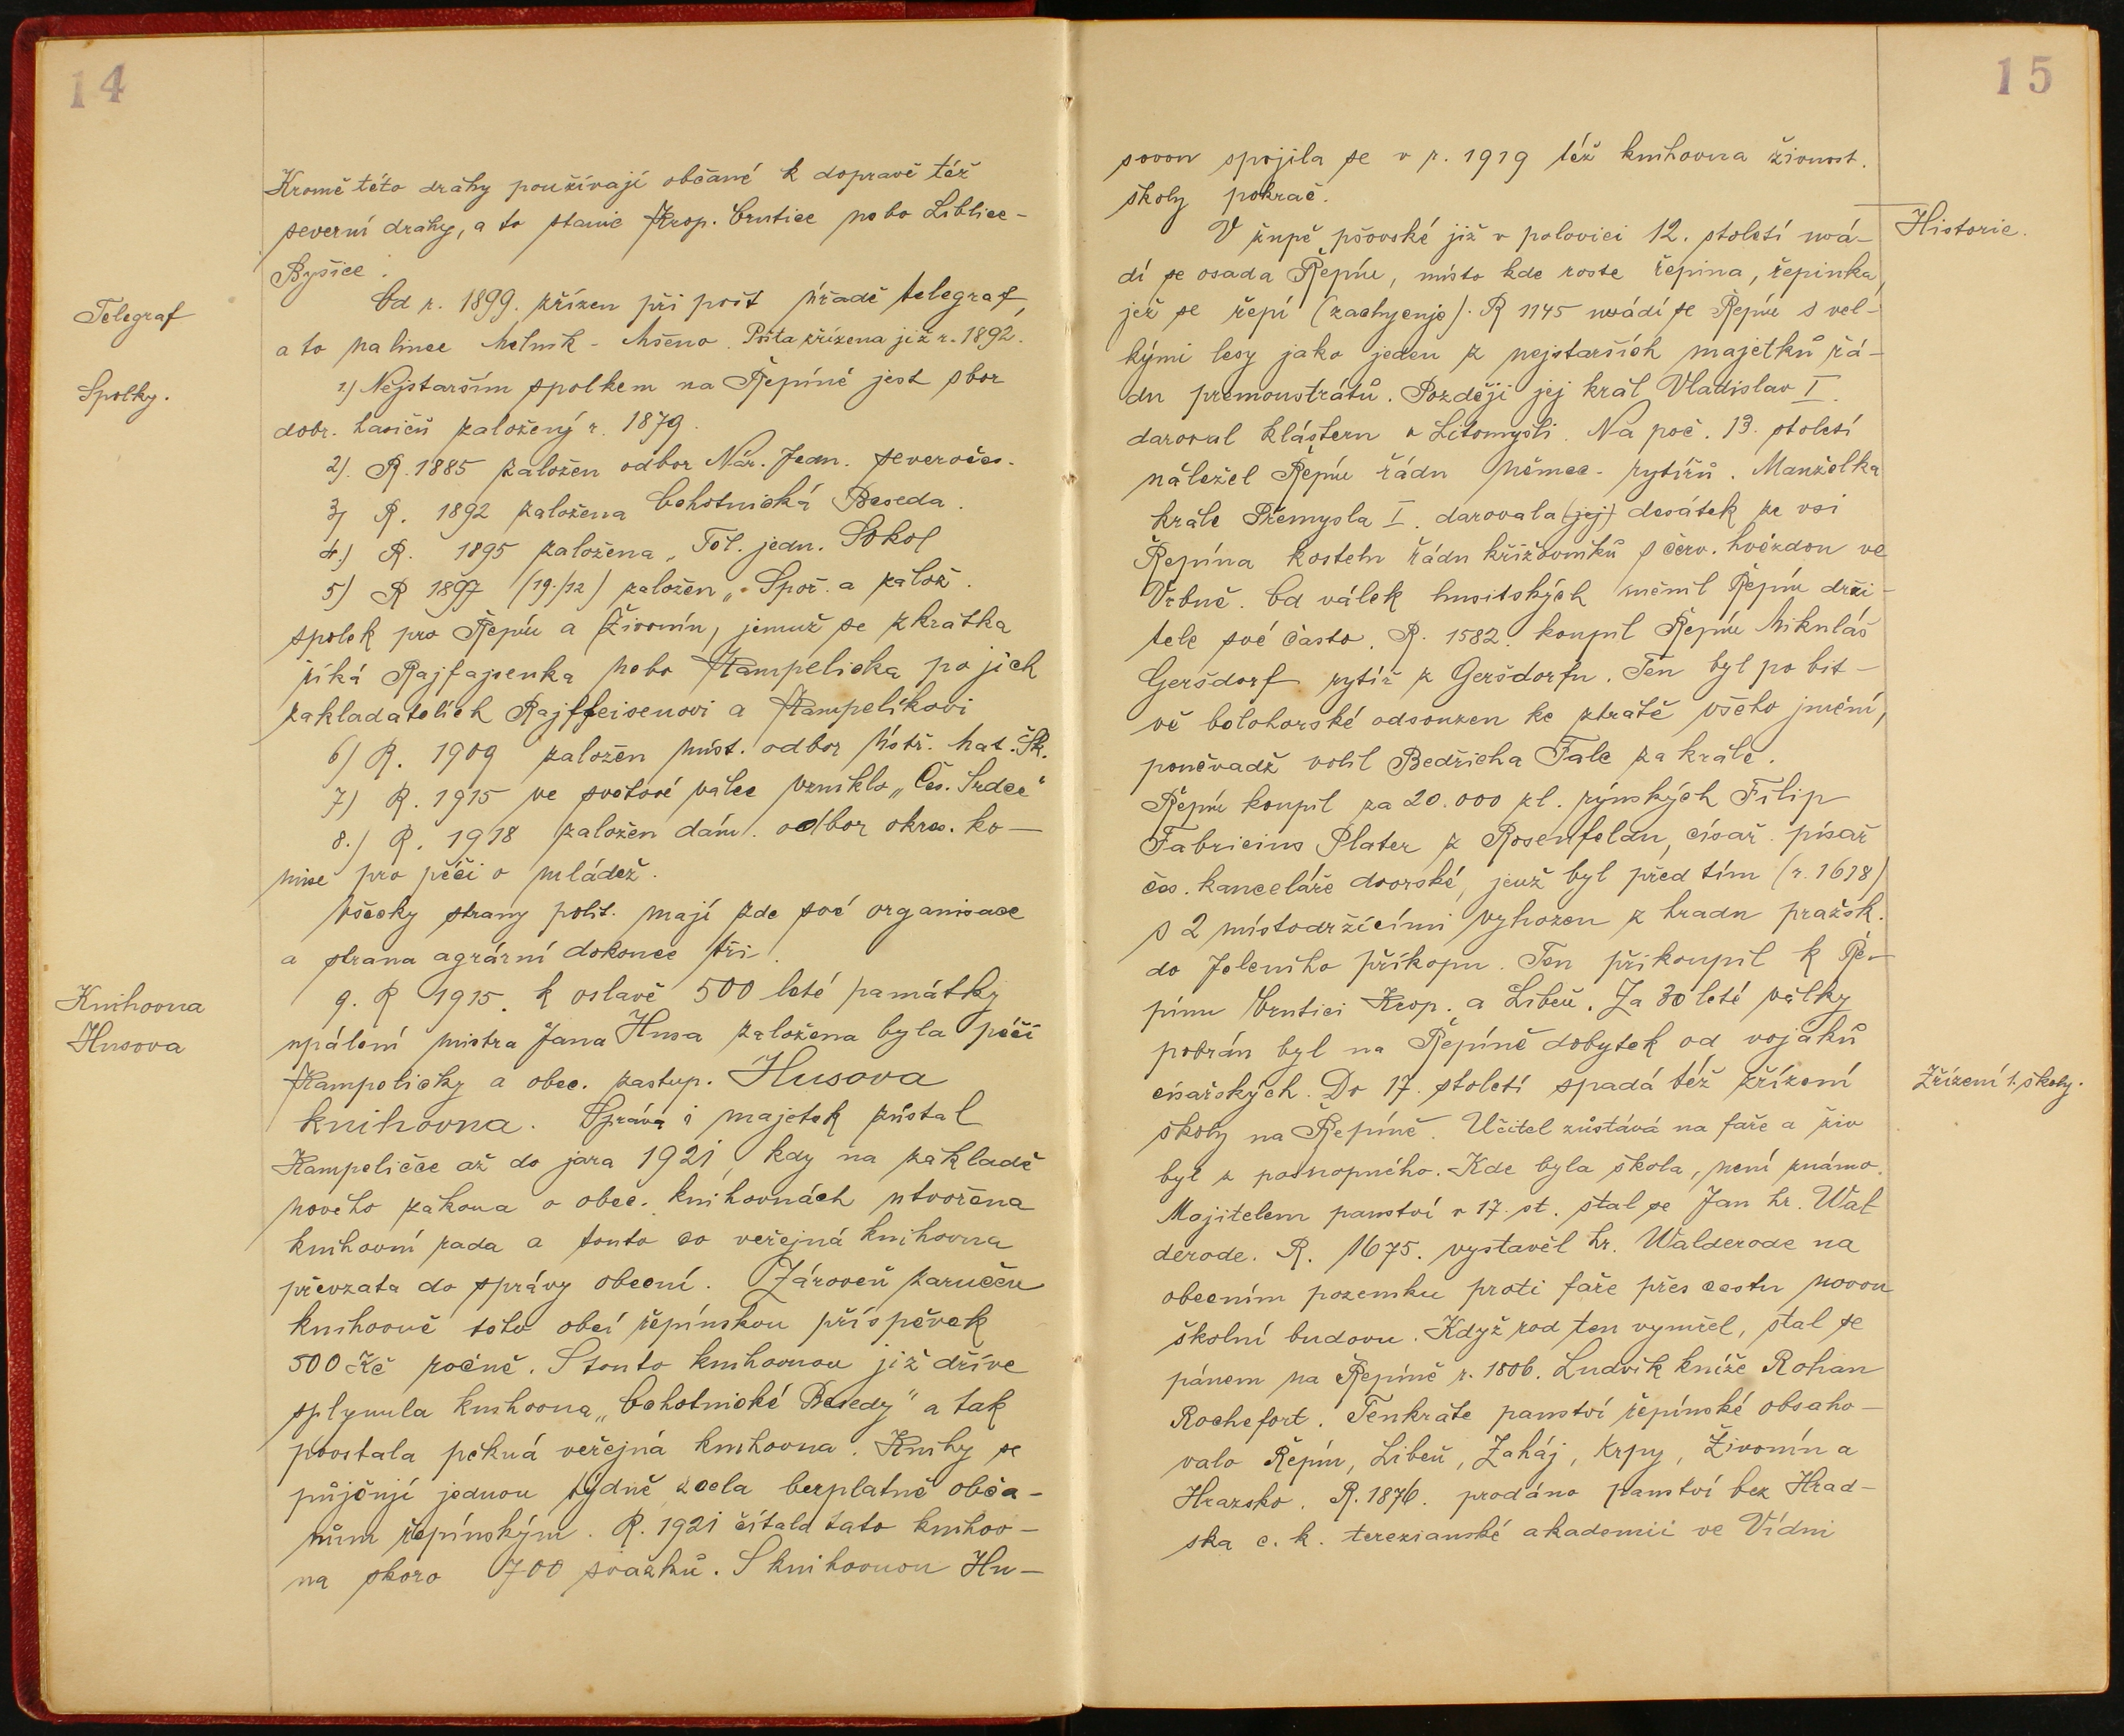 14
Kromě této dráhy používají občané k dopravě též
severní dráhy, a to stanic Krop. Vrutice nebo Liblice-
Byšice.
Telegraf
Od r. 1899. zřízen při pošt úřadě telegraf,
a to na lince Mělník - Mšeno. Pošta zřízena již r. 1892.
Spolky.
1) Nejstarším spolkem na Řepíně jest sbor
dobr. hasičů založený r. 1879.
2). R. 1885 založen odbor Nár. Jedn. severočes.
3) R. 1892 založena Ochotnická Beseda.
4.) R. 1895 založena „Těl. jedn. Sokol
5) R 1897 (19./12) založen „Spoř. a zálož.
spolek pro Řepín a Živonín, jemuž se zkrátka
říká Rajfajsenka nebo Kampelička po jich
zakladatelích Rajffeisenovi a Kampelíkovi
6) R. 1909 založen míst. odbor Ústř. Mat. Šk.
7) R. 1915 ve světové válce vzniklo „Čes. Srdce"
8.) R. 1918 založen dám. odbor okres. ko-
mise pro péči o mládež.
Všecky strany polit. mají zde své organisace
a strana agrární dokonce tři.
Knihovna
Husova
9. R 1915. k oslavě 500 leté památky
upálení mistra Jana Husa založena byla péčí
Kampeličky a obec. zastup. Husova
knihovna. Správa i majetek zůstal
Kampeličce až do jara 1921, kdy na základě
nového zákona o obec. knihovnách utvořena
knihovní rada a touto co veřejná knihovna
převzata do správy obecní. Zároveň zaručen
knihovně této obcí řepínskou příspěvek
500 Kč ročně. S touto knihovnou již dříve
splynula knihovna „Ochotnické Besedy" a tak
povstala pěkná veřejná knihovna. Knihy se
půjčují jednou týdně zcela bezplatně obča-
nům řepínským. R. 1921 čítala tato knihov-
na skoro 700 svazků. S knihovnou Hu-
15
sovou spojila se v r. 1919 též knihovna živnost.
školy pokrač.
Historie.
V župě pšovské již v polovici 12. století uvá-
dí se osada Řepín, místo kde roste řepina, řepinka,
jež se řepí (zachycuje). R 1145 uvádí se Řepín s vel-
kými lesy jako jeden z nejstarších majetků řá-
du premonstrátů. Později jej král Vladislav I.
daroval klášteru v Litomyšli. Na poč. 13. století
náležel Řepín řádu němec. rytířů. Manželka
krále Přemysla I. darovala (jej) desátek ze vsi
Řepína kostelu řádu křižovníků s červ. hvězdou ve
Vrbně. Od válek husitských měnil Řepín drži-
tele své často. R. 1582. koupil Řepín Mikuláš
Geršdorf rytíř z Geršdorfu. Ten byl po bit-
vě bělohorské odsouzen ke ztrátě všeho jmění,
poněvadž volil Bedřicha Falc za krále.
Řepín koupil za 20.000 zl. rýnských Filip
Fabricius Plater z Rosenfeldu, císař. písař
čes. kanceláře dvorské, jenž byl před tím (r. 1618)
s 2 místodržícími vyhozen z hradu pražsk.
do Jeleního příkopu. Ten přikoupil k Ře-
pínu Vrutici Krop. a Libeň. Za 30 leté války
pobrán byl na Řepíně dobytek od vojáků
Zřízení 1. školy.
císařských. Do 17. století spadá též zřízení
školy na Řepíně. Učitel zůstává na faře a živ
byl z posnopného. Kde byla škola, není známo.
Majitelem panství v 17. st. stal se Jan hr. Wal
derode. R. 1675. vystavěl hr. Walderode na
obecním pozemku proti faře přes cestu novou
školní budovu. Když rod ten vymřel, stal se
pánem na Řepíně r. 1806. Ludvík kníže Rohan
Rochefort. Tenkráte panství řepínské obsaho-
valo Řepín, Libeň, Zaháj, Krpy, Živonín a
Hrazsko. R. 1876. prodáno panství bez Hrad-
ska c. k. terezianské akademii ve Vídni